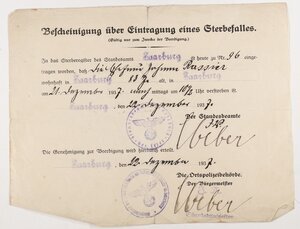 Bescheinigung über Eintragung eines Sterbefalles.
(Gültig nur zum Zwecke der Beerdigung.)
In das Sterberegister des Standesamts Saarburg ist heute zu Nr. 96 einge-
tragen worden, daß die Johann
wohnhaft in Saarburg 13 J. alt, in Saarburg
am 21. Dezember 1937 mittags um 10½ Uhr verstorben ist.
Saarburg, den 22. Dezember 1937.
Der Standesbeamte
J.V.
Weber
Die Genehmigung zur Beerdigung wird hierdurch erteilt.
Saarburg, den 22. Dezember 1937.
Die Ortspolizeibehörde.
Der Bürgermeister
Weber